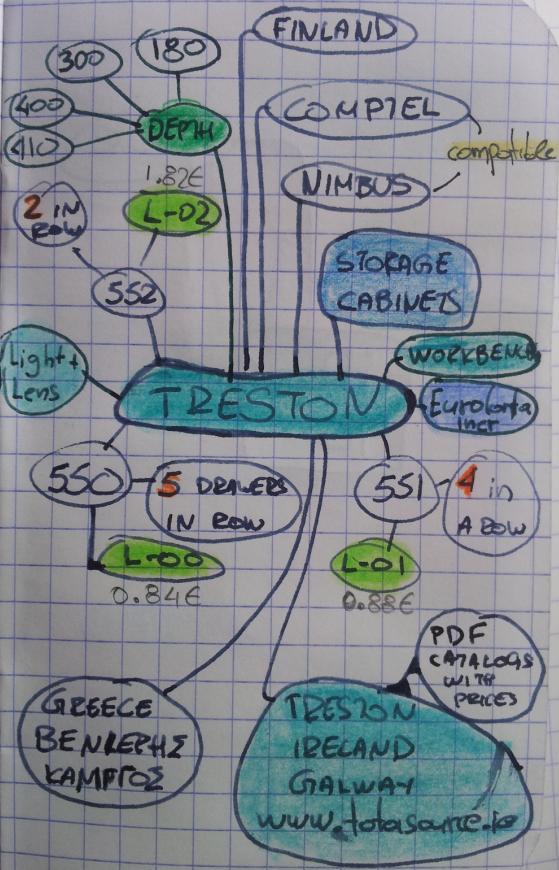 FINLAND
180
300
COMPTEL
400
DEPTH
410
compatible
1.82€
NIMBUS
2 IN
ROW
L-02
STORAGE
CABINETS
552
WORKBENCH
Light +
Lens
TRESTON
incr
550
5 DRAWERS
IN ROW
551
4 in
A ROW
L-00
L-01
0.84€
0.88€
PDF
CATALOGS
WITH
PRICES
GREECE
ΒΕΝΙΕΡΗΣ
ΚΑΜΠΟΣ
TRESTON
IRELAND
GALWAY
www.totasource.ie